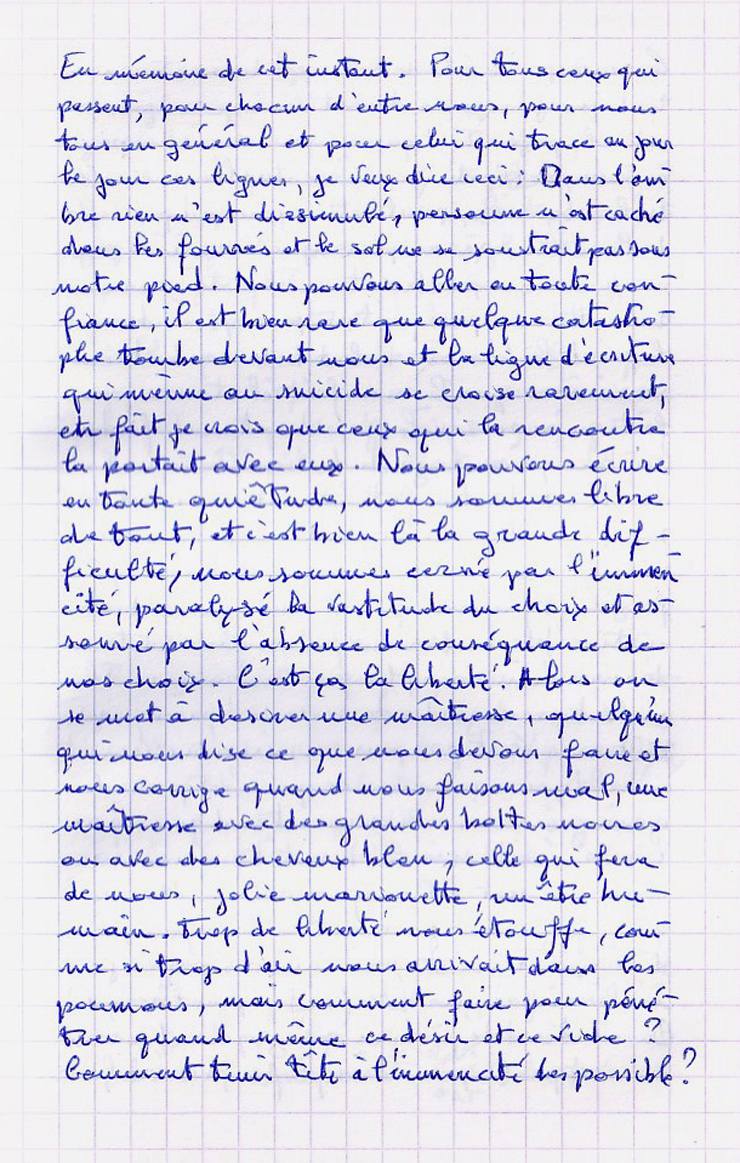 En mémoire de cet instant. Pour tous ceux qui
passent, pour chacun d'entre nous, pour nous
tous en général et pour celui qui trace au jour
le jour ces lignes, je veux dire ceci : Dans l'om
bre rien n'est dissimulé, personne n'est caché
dans les fourrés et le sol ne se soustrait pas sous
notre pied. Nous pouvons aller en toute con-
fiance, il est bien rare que quelque catastro-
phe tombe devant nous et la ligne d'écriture
qui mène au suicide se croise rarement,
en fait je crois que ceux qui la rencontre
la portait avec eux. Nous pouvons écrire
en toute quiêtude, nous sommes libre
de tout, et c'est bien là la grande dif-
ficulté, nous sommes cerné par l'immen
cité, paralysé la vastitude du choix et as-
sommé par l'absence de conséquance de
nos choix. C'est ça la liberté. Alors on
se met à desirer une maîtresse, quelqu'un
qui nous dise ce que nous devons faire et
nous corrige quand nous faisons mal, une
maîtresse avec des grandes bottes noires
ou avec des cheveux bleu, celle qui fera
de nous, jolie marionette, un être hu-
main. Trop de liberté nous étouffe, com
me si trop d'air nous arrivait dans les
poumons, mais comment faire pour péné-
trer quand même ce désir et ce vide ?
Comment tenir tête à l'immencité des possible ?